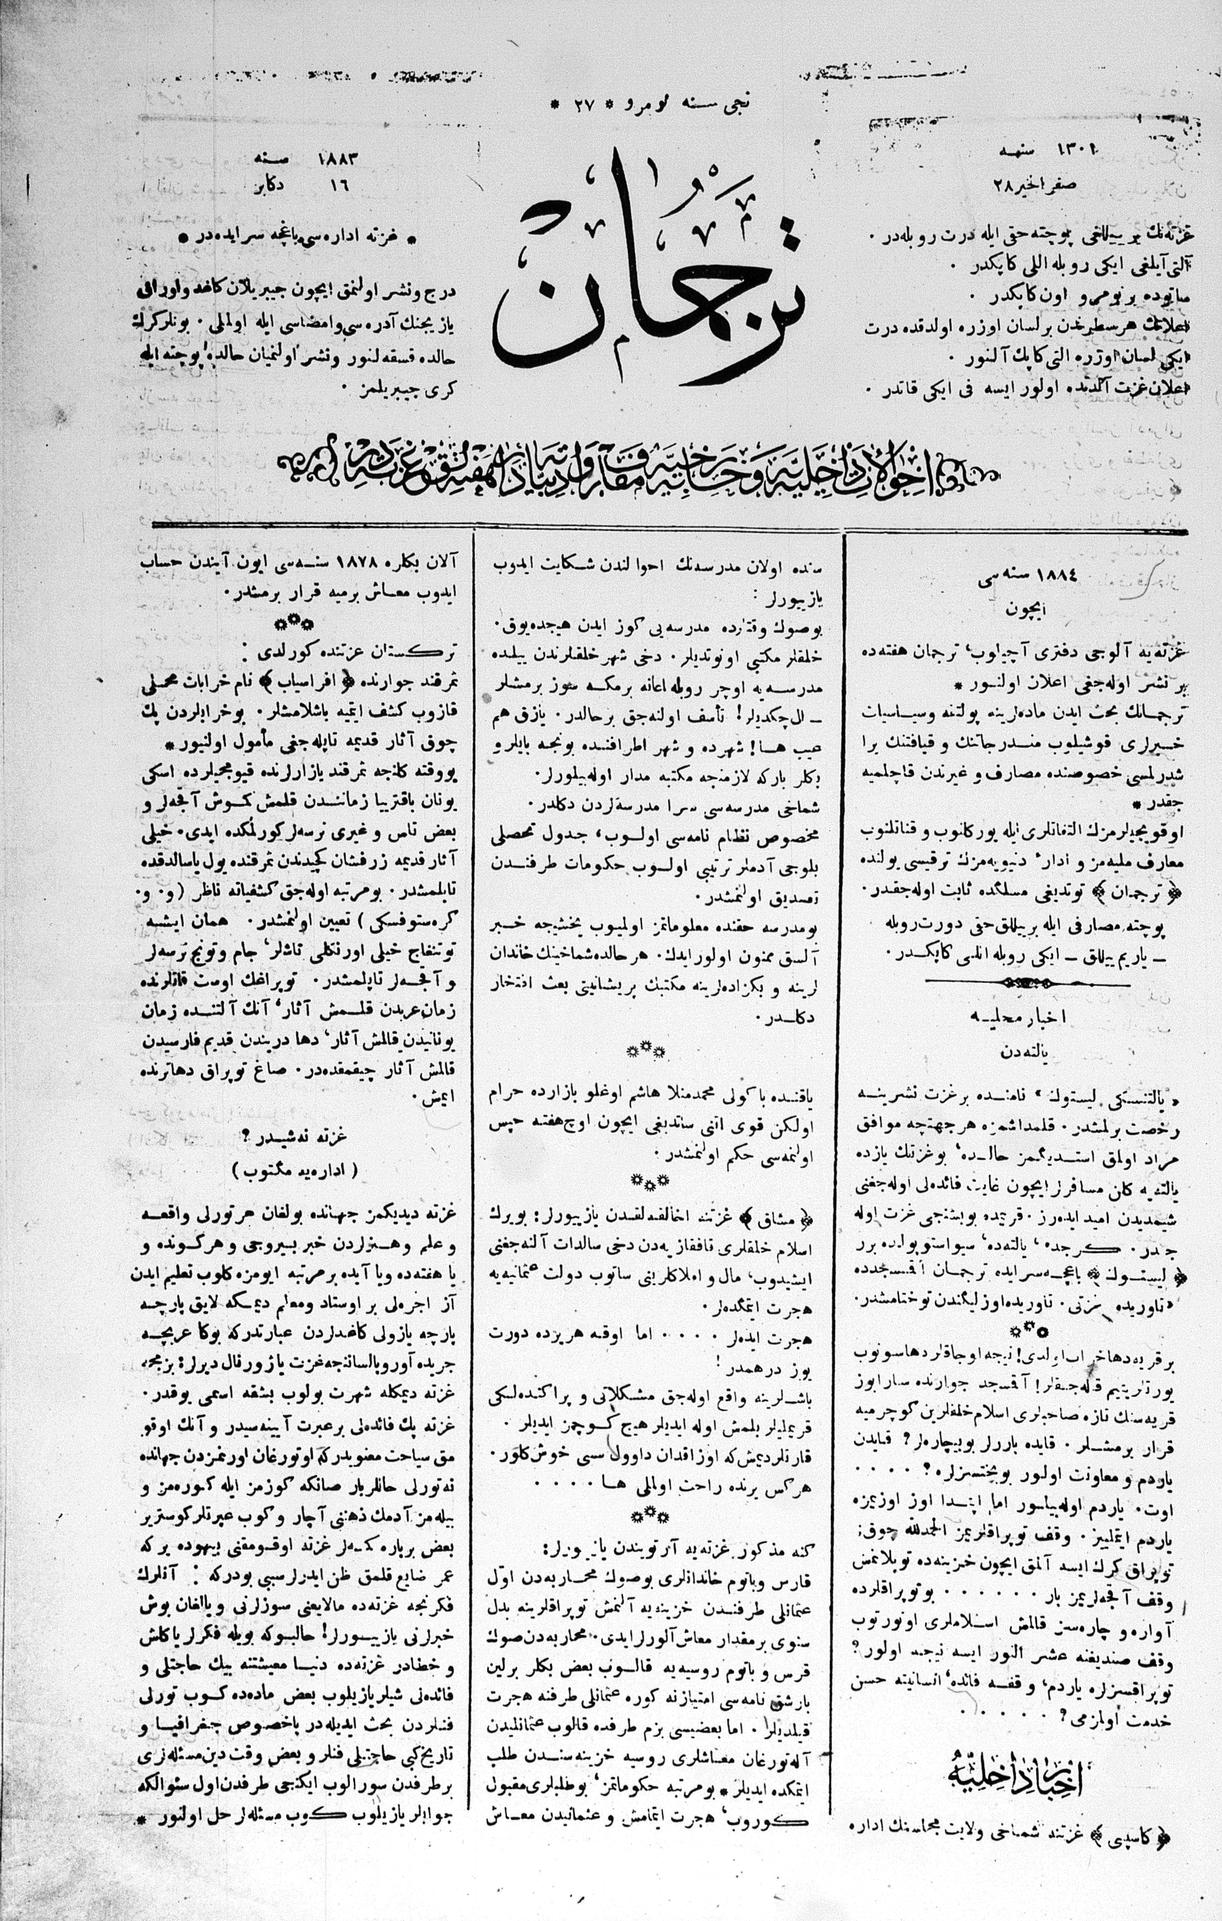 نجی سنه نومرو * ۲۷ *
۱۳۰۱ سنهه
صفر الخیر ۲۸
غزته‌نك بر ییللغی پوچته حقی ایله درت روبله‌در .
آلتی آیلغی ایکی روبله اللی کاپکدر .
صاتوده بر نومرو اون کاپکدر .
اعلانك هر سطرندن بر لسان اوزره اولدقده درت
ایکی لسان اوزره التی کاپك آلنور .
اعلان غزت آلدنده اولور ایسه فی ایکی قاتدر .
ترجمان
۱۸۸۳ سنه
۱٦ دکابر
* غزته اداره‌سی باغچه سرایده‌در *
درج ونشر اولنمق ایچون جیبریلان کاغد واوراق
یازیجینك آدره‌سی وامضاسی ایله اولمالی . بونلر کرك
حالده قسقه‌لنور ونشر اولنمیان حالده پوچته ایله
کری جیبریلمز .
۱۸۸٤ سنه‌سی
ایچون
غزته‌یه آلوجی دفتری آچیلوب، ترجمان هفته‌ده
بر نشر اوله‌جغی اعلان اولنور *
ترجمانك بحث ایدن ماده‌لرینه پولتقه وسیاسیات
خبرلری قوشیلوب مندرجاتنك و قیافتنك برا
شدرلمسی خصوصنده مصارف و غیرتدن قاچلمیه
جقدر *
اوقویجیلرمزك التفاتلری ایله یورکلنوب و قناتلنوب
معارف ملیه‌مز و ادارۀ دنیویه‌مزك ترقیسی یولنده
﴿ ترجمان ﴾ توتدیغی مسلکده ثابت اوله‌جقدر .
پوچته مصارفی ایله بر ییللق حقی دورت روبله
ــ یاریم ییللق ــ ایکی روبله اللی کاپکدر .
اخبار محلیه
یالته‌دن
« یالتنسکی لیستوك » نامنده بر غزت نشرینه
رخصت برلمشدر . قلمداشمزه هر جهتجه موافق
مراد اولمق استدیکمز حالده، بو غزتنك یازده
یالته‌یه کلن مسافرلر ایچون غایت فائده‌لی اوله‌جغنی
شیمدیدن امید ایده‌رز . قریمده بو بشنجی غزت اوله
جقدر . کرچده، یالته‌ده، سیواستوپولده برر
﴿ لیستوك ﴾ باغچه‌سرایده ترجمان آقمسجدده
بر قریه دها خراب اولدی! نیجه اوجاقلر دها سونوب
یورتلر یتیم قله‌جقلر! آقمسجد جوارنده سارابوز
قریه‌سنك تازه صاحبلری اسلام خلقلرین کوچرمیه
قرار برمشلر . قایده باررلر بو بیچاره‌لر؟ قایدن
یاردم و معاونت اولور بو بختسزلره؟ . . . .
اوت . یاردم اوله‌بیلور اما ابتدا اوز اوزیمزه
یاردم ایتملیز . وقف توپراقلریمز الحمدلله چوق؛
توپراق کرك ایسه آلمق ایچون خزینه‌ده توپلانمش
وقف آقچه‌لریمز بار . . . . . . بو توپراقلرده
آواره و چاره‌سز قالمش اسلاملری اوتورتوب
وقف صندیغنه عشر النور ایسه نیجه اولور؟
توپراقسزلره یاردم، وقفه فائده، انسانیته حسن
خدمت اولمزمی؟ . . . . .
اخبار داخلیه
﴿ کاسپی ﴾ غزتنه شماخی ولایت مجلسنك اداره
سنده اولان مدرسه‌نك احوالندن شکایت ایدوب
یازیبورلر :
بو صوك وقتلرده مدرسه‌یی کوز ایدن هیچده‌یوق .
خلقلر مکتبی اونوتدیلر . دخی شهر خلقلرندن ییلده
مدرسه‌یه اوچر روبله اعانه برمکه سوز برمشلر
ــ ال چکدیلر! تأسف اولنه‌جق بر حالدر . یازق هم
عیب ها! شهرده و شهر اطرافنده بونجه بایلر و
بکلر بارکه لازمنجه مکتبه مدار اوله‌بیلورلر .
شماخی مدرسه‌سی سرا مدرسه‌لردن دکلدر .
مخصوص نظام نامه‌سی اولوب، جدول تحصلی
بلوجی آدملر ترتیبی اولوب حکومات طرفندن
تصدیق اولنمشدر .
بو مدرسه حقنده معلوماتمز اولمیوب یخشیجه خبر
آلسق ممنون اولور ایدك . هر حالده شماخینك خاندان
لرینه و بکزاده‌لرینه مکتبك پریشانیتی بعث افتخار
دکلدر .
یاقنده باکولی محمد منلا هاشم اوغلو بازارده حرام
اولکن قوی اتنی ساتدیغی ایچون اوچ هفته حپس
اولنمه‌سی حکم اولنمشدر .
﴿ مشاق ﴾ غزتنه اخالقه‌لقدن یازیبورلر: بو یرك
اسلام خلقلری قافقازیه‌دن دخی سالدات آلنه‌جغنی
ایشیدوب، مال و املاکلرینی ساتوب دولت عثمانیه‌یه
هجرت ایتمکده‌لر .
هجرت ایده‌لر . . . . اما اوقه هر یزده دورت
یوز درهمدر!
باشلرینه واقع اوله‌جق مشکلاتی و پراکنده‌لکی
قریملیلر بلمش اوله ایدیلر هیچ کوچمز ایدیلر .
قارتلر دیمش که اوزاقدان داوول سسی خوش کلور .
هرکس یرنده راحت اولمالی ها . . . . .
کنه مذکور غزته‌یه آرتویندن یازیبورلر:
قارس و باتوم خاندانلری بو صوك محاربه‌دن اول
عثمانلی طرفندن خزینه‌یه آلنمش توپراقلرینه بدل
سنوی بر مقدار معاش آلورلر ایدی . محاربه‌دن صوك
قرس و باتوم روسیه‌یه قالوب بعض بکلر برلین
بارشق نامه‌سی امتیازنه کوره عثمانلی طرفنه هجرت
قیلدیلر . اما بعضیسی بزم طرفده قالوب عثمانلیدن
آله‌تورغان معاشلری روسیه خزینه‌سندن طلب
ایتمکده ایدیلر * بو مرتبه حکوماتمز، بو طلبلری مقبول
کوروب، هجرت ایتمامش و عثمانلیدن معاش
آلان بکلره ۱۸۷۸ سنه‌سی ایون آیندن حساب
ایدوب معاش برمیه قرار برمشدر .
ترکستان غزتنده کورلدی :
ثمرقند جوارنده ﴿ افراسیاب ﴾ نام خرابات محللی
قازوب کشف ایتمیه باشلامشلر . بو خرابلردن پك
چوق آثار قدیمه تاپله‌جغی مأمول اولنیور *
بو وقته کلنجه ثمرقند بازارلرنده قیومجیلرده اسکی
یونان باقتریا زماننندن قلمش کموش آقچه‌لر و
بعض تاس و غیری نرسه‌لر کورلمکده ایدی . خیلی
آثار قدیمه زرفشان کچیدندن ثمرقنده یول یاسالدقده
تاپلمشدر . بو مرتبه اوله‌جق کشفیاته ناظر (و . و .
کره‌ستوفسکی) تعیین اولنمشدر . همان ایشه
توتنغاچ خیلی اورنکلی تاشلر، جام و تونج نرسه‌لر
و آقچه‌لر تاپلمشدر . توپراغك اوست قاتلرنده
زمان عربدن قلمش آثار، آنك آلتنده زمان
یونانیدن قالمش آثار، دها دریندن قدیم فارسیدن
قالمش آثار چیقمقده‌در . صاغ توپراق دها ترنده
ایمش .
غزته نه شیدر؟
( اداره‌یه مکتوب )
غزته دیدیکمز جهانده بولغان هر تورلی واقعه
و علم و هنرلردن خبر بیروجی و هر کونده و
یا هفته‌ده ویا آیده بر مرتبه ایومزه کلوب تعلیم ایدن
آز اجره‌لی بر اوستاد و معلم دیمکه لایق پارچه
پارچه یازولی کاغدلردن عبارتدرکه بوکا عربچه
جریده آوروپا لسانجه غزت یا ژورنال دیرلر: بزمجه
غزته دیمکله شهرت بولوب بشقه اسمی یوقدر .
غزته پك فائده‌لی بر عبرت آیینه‌سیدر و آنك اوقو
مق سیاحت معنویه‌درکه اوتورغان اورنمزدن جهانده
نه تورلی حاللر بار صانکه کوزمز ایله کوره‌مز و
بیله‌مز آدمك ذهننی آچار و کوب عبرتلر کوستریر
بعض بر پاره کمسه‌لر غزته اوقومقنی بیهوده یرکه
عمر ضایع قلمق ظن ایدرلر سببی بودرکه : آنلرك
فکرنجه غزته‌ده مالایعنی سوزلرنی و یالغان بوش
خبرلرنی یازیبورلر! حالبوکه بویله فکرلر یاکلش
و خطادر غزته‌ده دنیا معیشتنه بیك حاجتلی و
فائده‌لی شیلر یازیلوب بعض ماده‌ده کوب تورلی
فنلردن بحث ایدیله‌در باخصوص جغرافیا و
تاریخ کبی حاجتلی فنلر و بعض وقت دین مسئله‌لری
بر طرفدن سورالوب ایکنجی طرفدن اول سئوالکه
جوابلر یازیلوب کوب مسئله‌لر حل اولنور *